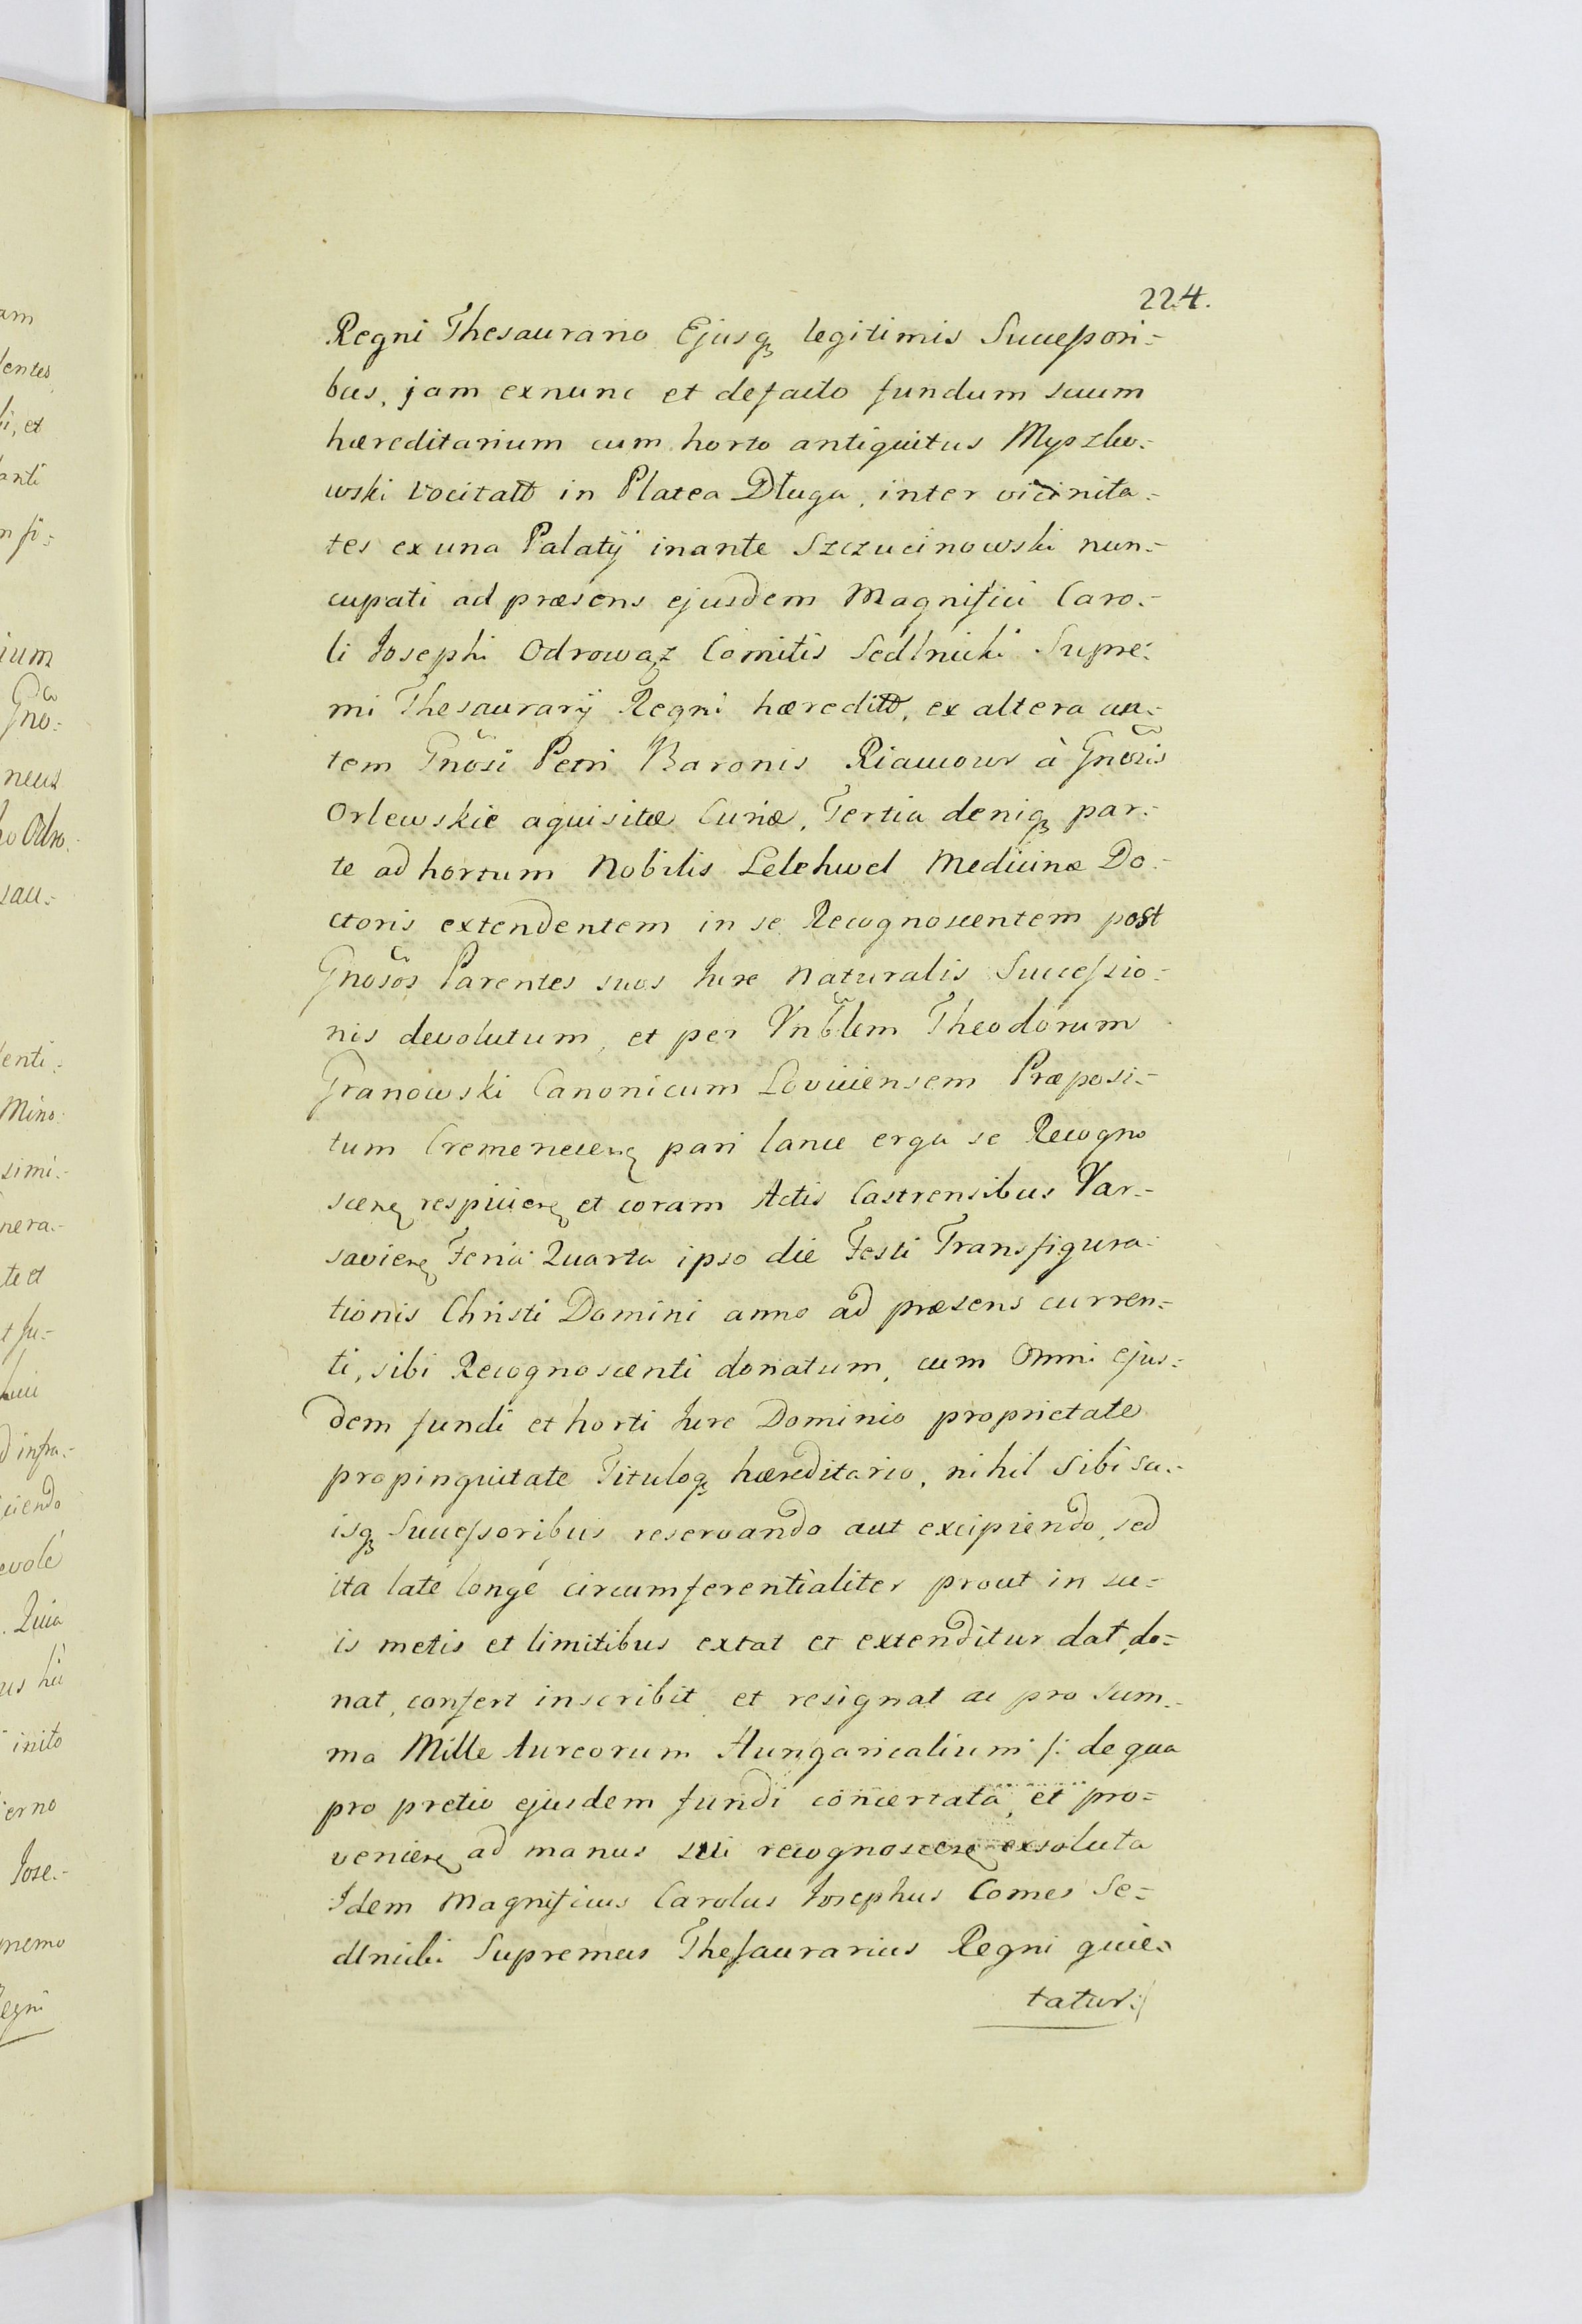 224.
Regni Thesaurario Ejusq legitimis Successori=
bus, jam exnunc et defacto fundum suum
hæreditarium cum horto antiquitus Myszko=
wski vocitatt in Platea Długa, inter vicinita=
tes ex una Palatij inante Szczucinowski nun=
cupati ad præsens ejusdem Magnifici Caro=
li Josephi Odrowąz Comitis Sedlnicki Supre=
mi Thesaurarij Regni hæreditt, ex altera au=
tem Gnosi Petri Baronis Riaucour à Gneris
Orlewskie aquisitæ Curiæ, Tertia deniq par=
te ad hortum Nobilis Lelehwel Medicinæ Do=
ctoris extendentem in se Recognoscentem post
Gnosos Parentes suos Jure Naturalis Successio=
nis devolutum, et per Vnblem Theodorum
Granowski Canonicum Loviciensem Præposi=
tum Cremenecen pari lance erga se Recogno
scen respicien et coram Actis Castrensibus Var=
savien Feria Quarta ipso die Festi Transfigura=
tionis Christi Domini anno ad præsens curren=
ti, sibi Recognoscenti donatum, cum Omni ejus=
dem fundi et horti Jure Dominio proprietate
propinquitate Tituloq hæreditario, nihil sibi su=
isq Successoribus reservando aut excipiendo, sed
ita laté longé circumferentialiter prout in su=
is metis et limitibus extat et extenditur dat, do=
nat, confert inscribit et resignat ac pro sum=
ma Mille Aureorum Hungaricalium /: de qua
pro pretio ejusdem fundi concertata, et pro=
venien ad manus sui recognoscen exsoluta
Idem Magnificus Carolus Josephus Comes Se=
dlnicki Supremus Thesaurarius Regni quie=
tatur:/